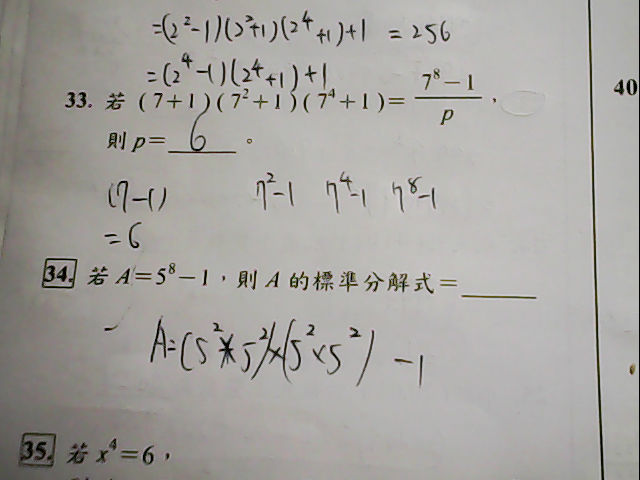 =(2²-1)(2²+1)(2⁴+1)+1 = 256
=(2⁴-1)(2⁴+1)+1
33. 若 (7+1)(7²+1)(7⁴+1)= (7⁸-1)/p ,
則 p= 6 。
(7-1) 7²-1 7⁴-1 7⁸-1
=6
40
34. 若 A=5⁸-1,則 A 的標準分解式=______
A=(5²×5²)×(5²×5²) -1
35. 若 x⁴=6,